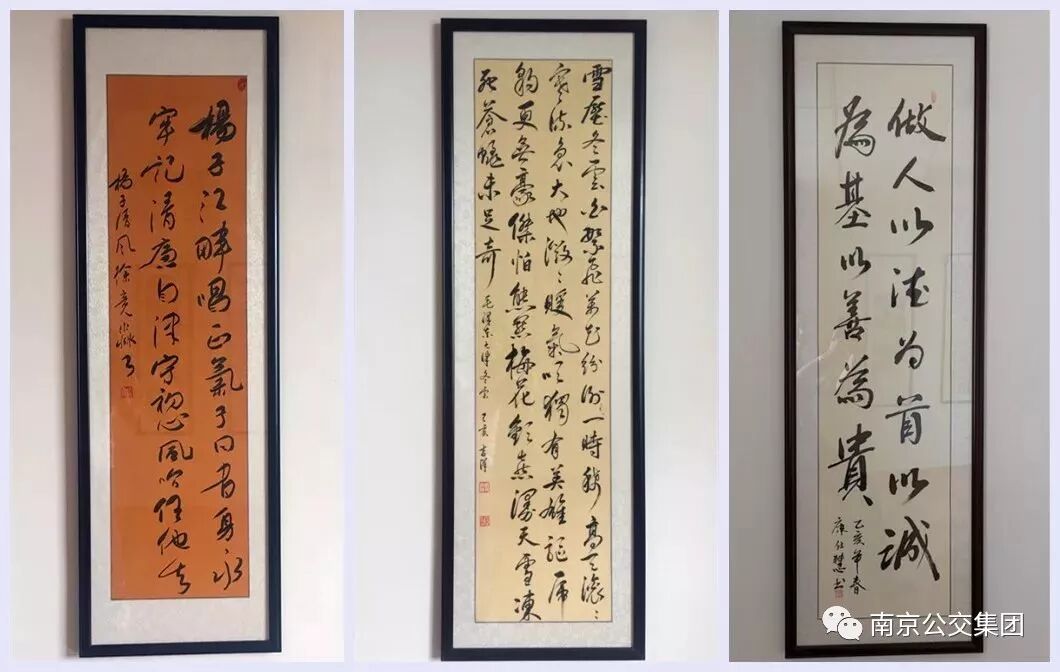 楊子江畔唱正氣子曰身永
牢記清廉自律守初心風吹任他去
楊子清風徐亮
雪壓冬雲白絮飛萬花紛谢一時稀高天滚ミ
寒流急大地微ミ暖氣吹獨有英雄驱虎
豹更無豪傑怕熊羆梅花歡喜漫天雪凍
死蒼蠅未足奇
毛澤东七律冬雲 己亥
做人以德为首以誠
為基以善為貴
己亥年春
康仕慧书
南京公交集团